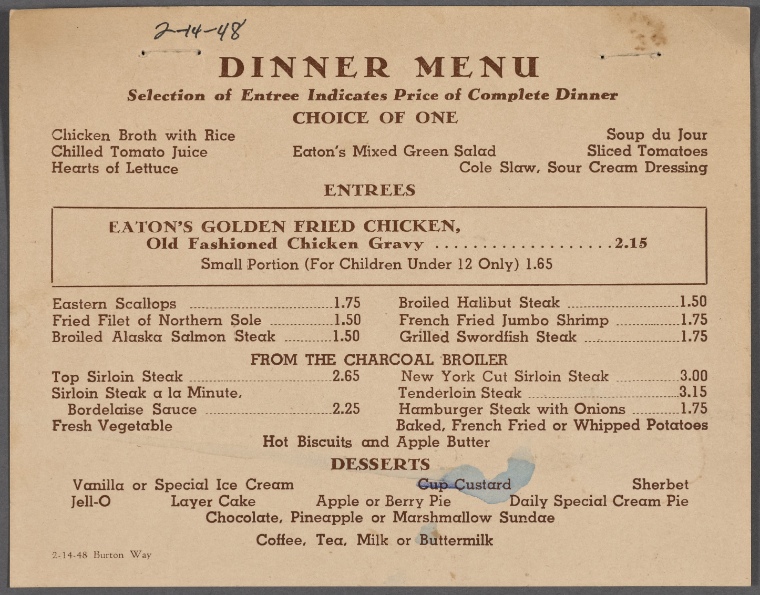 2-14-48
DINNER MENU
Selection of Entree Indicates Price of Complete Dinner
CHOICE OF ONE
Chicken Broth with Rice Soup du Jour
Chilled Tomato Juice Eaton's Mixed Green Salad Sliced Tomatoes
Hearts of Lettuce Cole Slaw, Sour Cream Dressing
ENTREES
EATON'S GOLDEN FRIED CHICKEN,
Old Fashioned Chicken Gravy ...................2.15
Small Portion (For Children Under 12 Only) 1.65
Eastern Scallops ........1.75 Broiled Halibut Steak ........1.50
Fried Filet of Northern Sole ........1.50 French Fried Jumbo Shrimp ........1.75
Broiled Alaska Salmon Steak ........1.50 Grilled Swordfish Steak ........1.75
FROM THE CHARCOAL BROILER
Top Sirloin Steak ........2.65 New York Cut Sirloin Steak ........3.00
Sirloin Steak a la Minute, Tenderloin Steak ........3.15
Bordelaise Sauce ........2.25 Hamburger Steak with Onions ........1.75
Fresh Vegetable Baked, French Fried or Whipped Potatoes
Hot Biscuits and Apple Butter
DESSERTS
Vanilla or Special Ice Cream Cup Custard Sherbet
Jell-O Layer Cake Apple or Berry Pie Daily Special Cream Pie
Chocolate, Pineapple or Marshmallow Sundae
Coffee, Tea, Milk or Buttermilk
2-14-48 Burton Way